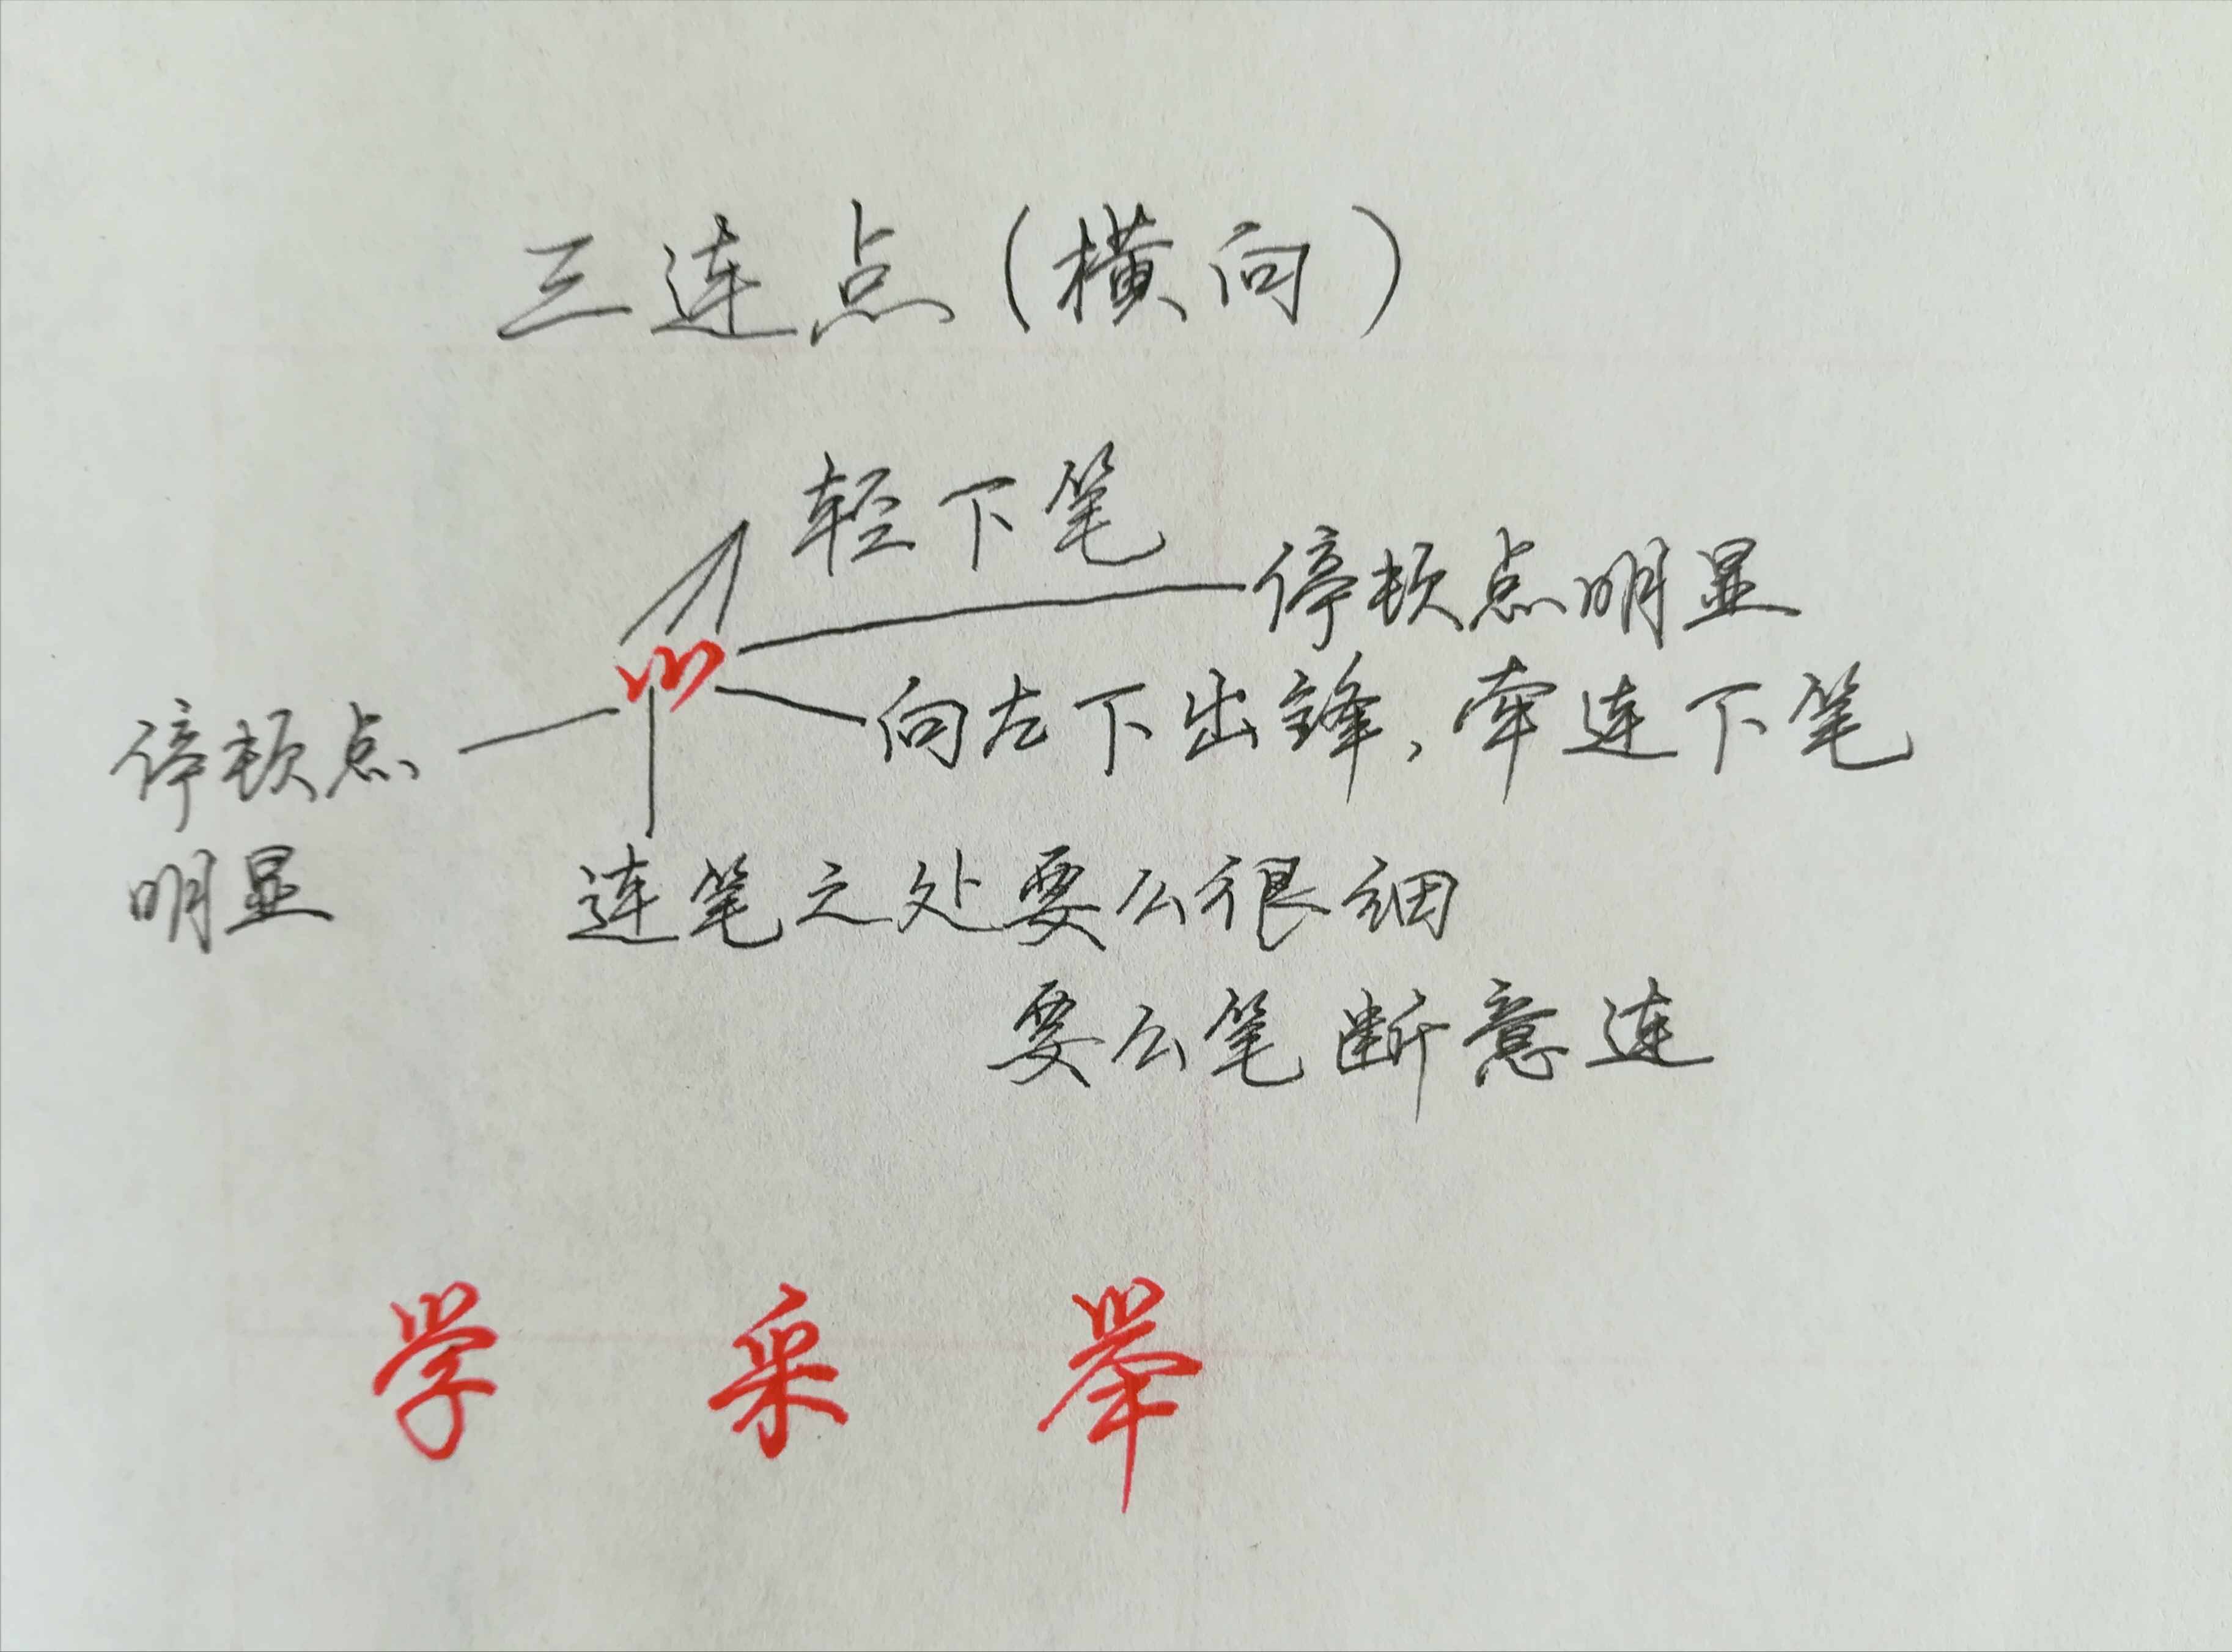 三连点(横向)
轻下笔
停顿点明显
向左下出锋,牵连下笔
停顿点
明显
连笔之处要么很细
要么笔断意连
学 采 举